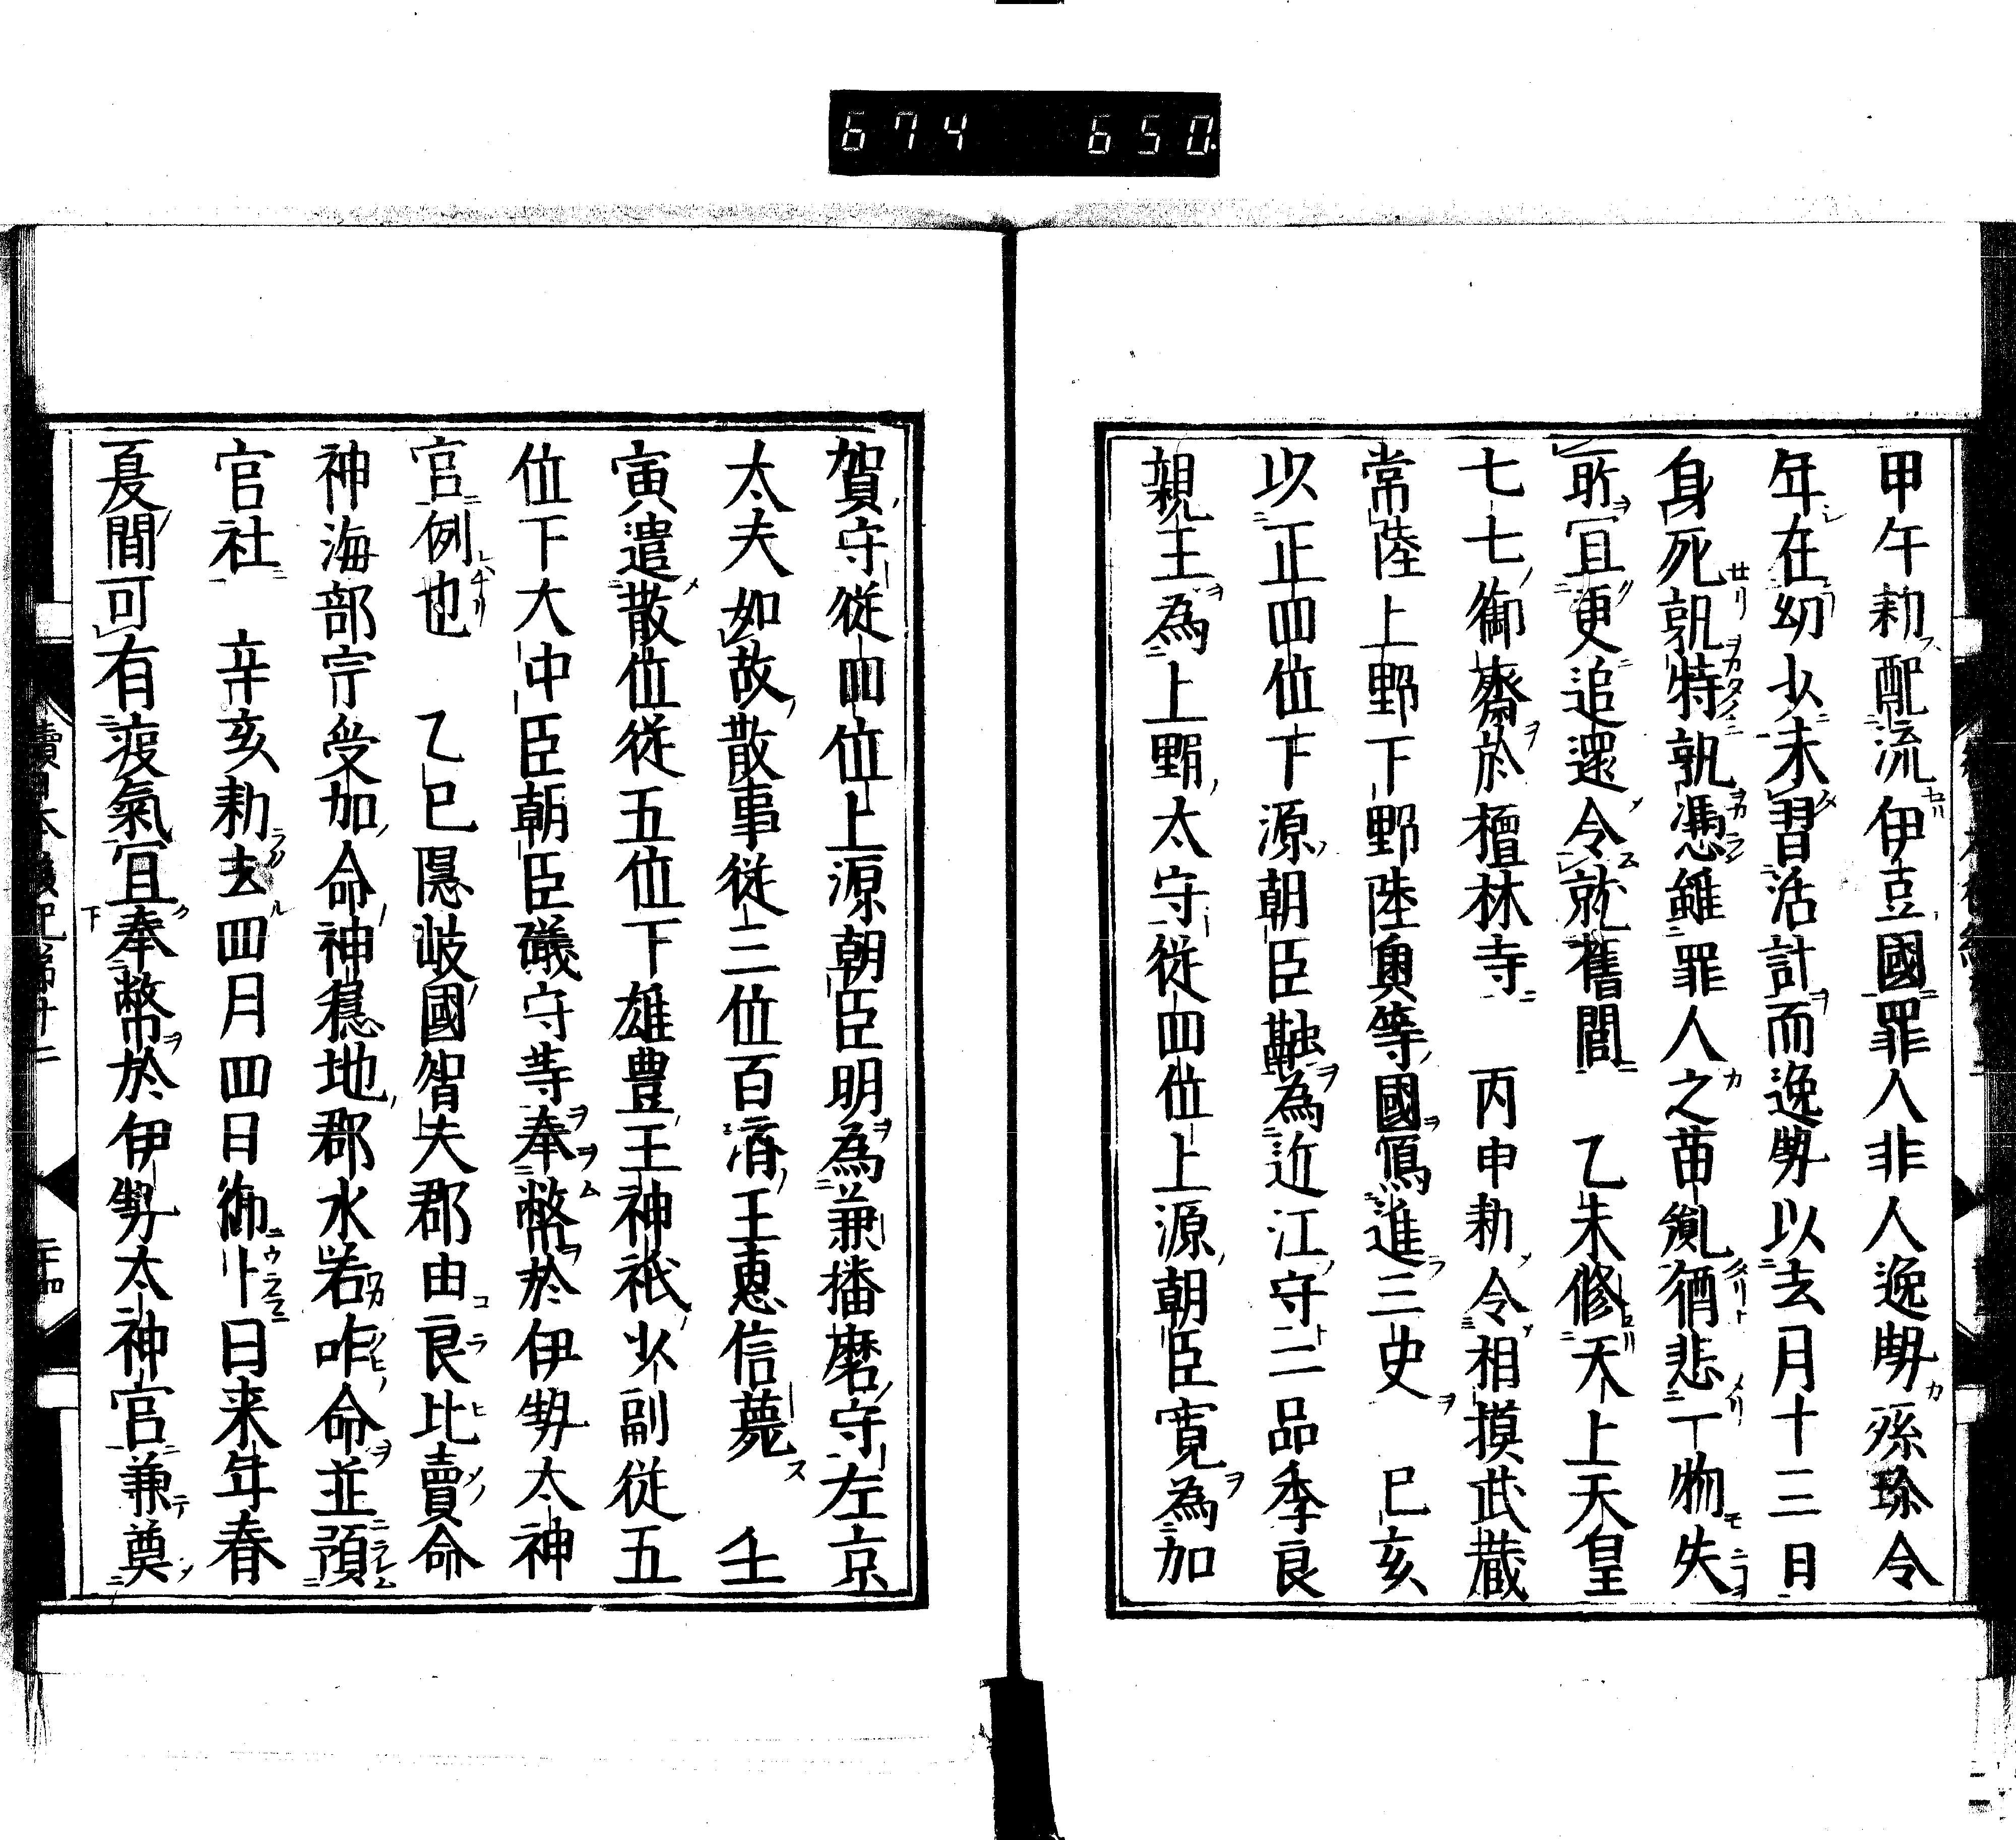 674 650
甲午勅配流伊豆國罪人非人逸勢孫珎令
年在幼少未習活計而逸勢以去月十三日
身死孰特孰憑雖罪人之苗胤猶悲一物失
所宜更追還令就舊閭 乙未修太上天皇
七七御齋於檀林寺 丙申勅令相摸武蔵
常陸上野下野陸奥等國寫進三史 己亥
以正四位下源朝臣融為近江守二品秀良
親王為上野太守従四位上源朝臣寛為加
賀守従四位上源朝臣明為兼播磨守左京
太夫如故散事従三位百済王恵信薨 壬
寅遣散位従五位下雄豊王神祇少副従五
位下大中臣朝臣礒守等奉幣於伊勢太神
官例也 乙巳隠岐國智夫郡由良比賣命
神海部郡宇受加命神穏地郡水若咋命並預
官社 辛亥勅去四月四日御卜曰来年春
夏間可有疫氣宜奉幣於伊勢太神宮兼奠
續日本後紀巻十二 二十四